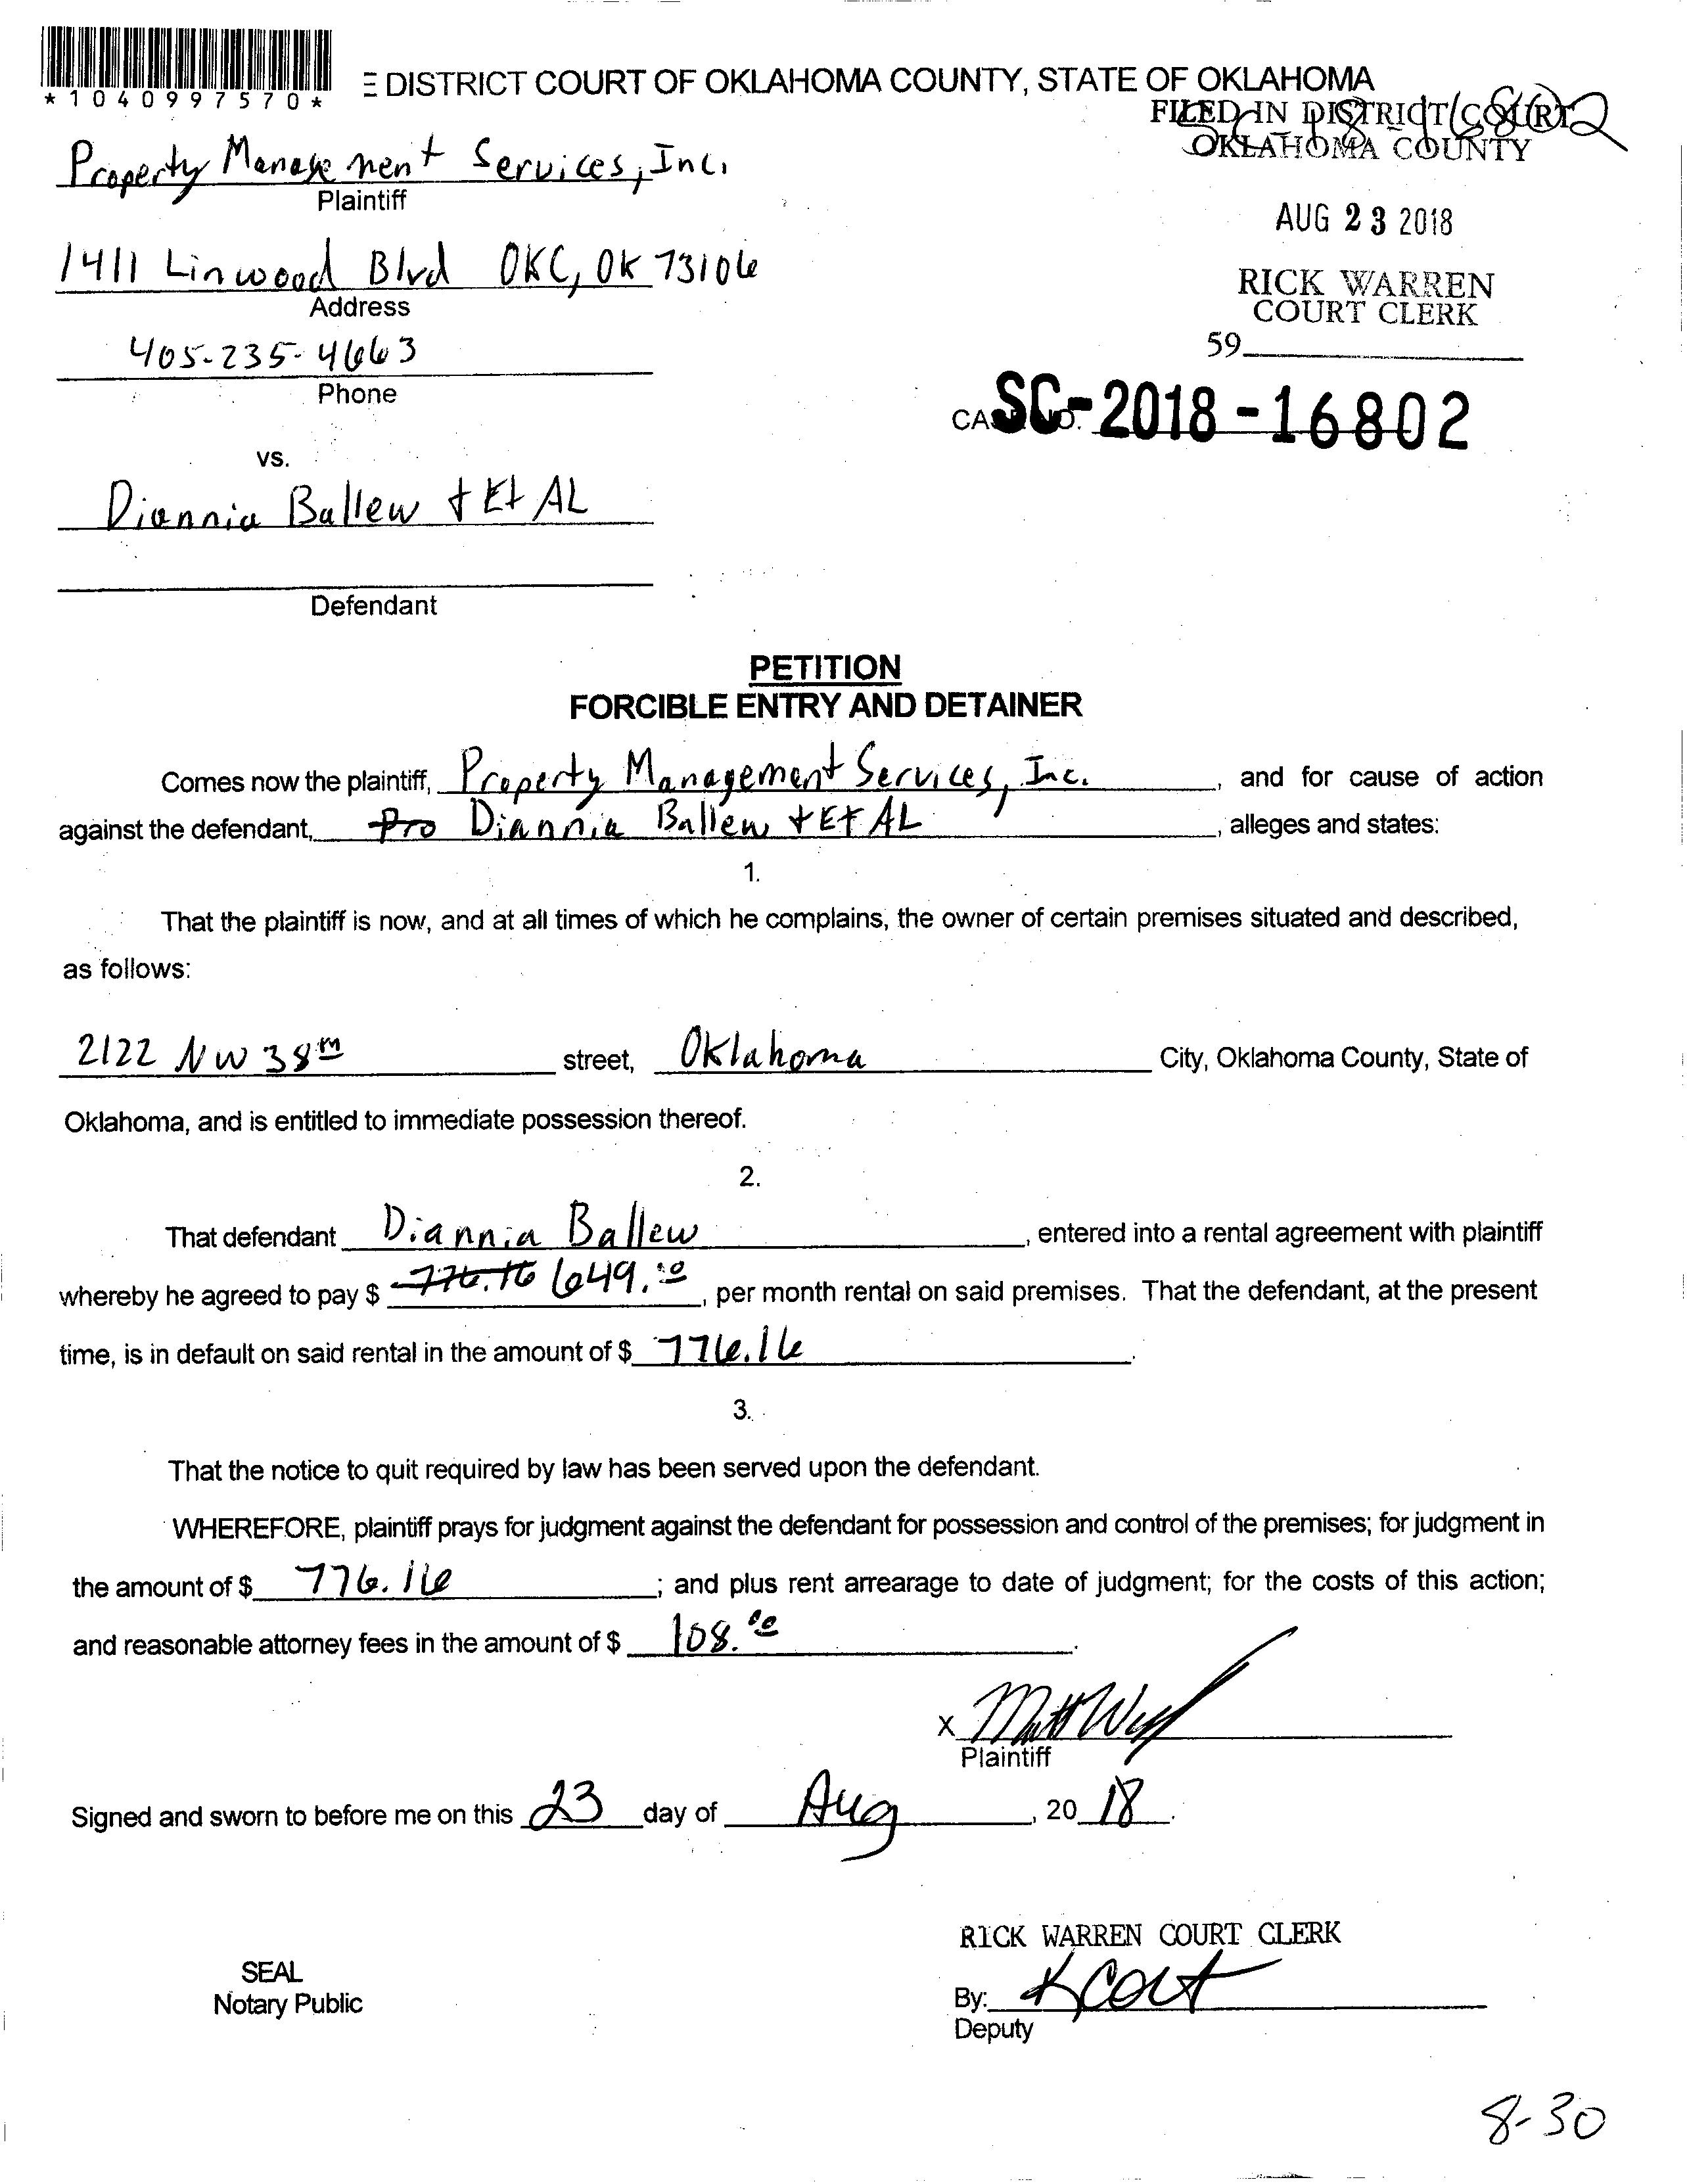 *1040997570*
E DISTRICT COURT OF OKLAHOMA COUNTY, STATE OF OKLAHOMA
FILED IN DISTRICT COURT
OKLAHOMA COUNTY
SC-18-16802
Property Management Services, Inc.
Plaintiff
AUG 23 2018
1411 Linwood Blvd OKC, OK 73106
Address
RICK WARREN
COURT CLERK
405-235-4663
59
Phone
CASE NO. SC-2018-16802
vs.
Diannia Ballew + Et AL
Defendant
PETITION
FORCIBLE ENTRY AND DETAINER
Comes now the plaintiff, Property Management Services, Inc. , and for cause of action
against the defendant, Pro Diannia Ballew + Et AL , alleges and states:
1.
That the plaintiff is now, and at all times of which he complains, the owner of certain premises situated and described,
as follows:
2122 NW 38th street, Oklahoma City, Oklahoma County, State of
Oklahoma, and is entitled to immediate possession thereof.
2.
That defendant Diannia Ballew , entered into a rental agreement with plaintiff
whereby he agreed to pay $ 776.16 649.00 , per month rental on said premises. That the defendant, at the present
time, is in default on said rental in the amount of $ 776.16 .
3.
That the notice to quit required by law has been served upon the defendant.
WHEREFORE, plaintiff prays for judgment against the defendant for possession and control of the premises; for judgment in
the amount of $ 776.16 ; and plus rent arrearage to date of judgment; for the costs of this action;
and reasonable attorney fees in the amount of $ 108.00 .
X
Plaintiff
Signed and sworn to before me on this 23 day of Aug , 20 18 .
RICK WARREN COURT CLERK
SEAL
Notary Public
By:
Deputy
8-30